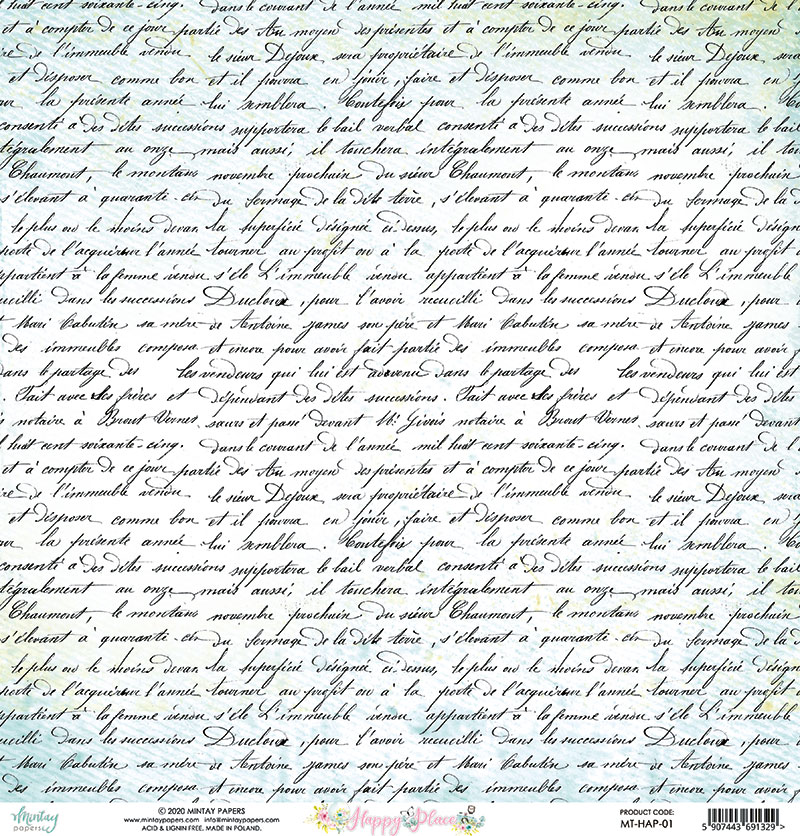 mil huit cent soixante-cinq. dans le courant de l'année mil huit cent soixante-cinq. dans le courant de l'
et à compter de ce jour partie des Au moyen des présentes et à compter de ce jour partie des Au moyen
de l'immeuble vendu le sieur Dejoux, sera propriétaire de l'immeuble vendu le sieur Dejoux, sera
et disposer comme bon et il pourra en jouir, faire et disposer comme bon et il pourra en
la présente année lui semblera. Toutefois pour la présente année lui semblera.
consenti à des dites successions supportera le bail verbal consenti à des dites successions supportera le bail
intégralement au onze mais aussi, il touchera intégralement au onze mais aussi, il
Chaumont, le montant novembre prochain du sieur Chaumont, le montant novembre prochain
s'élevant à quarante- du fermage de la dite terre, s'élevant à quarante- du fermage de la
le plus ou le moins devant la superficie désignée ci-dessus, le plus ou le moins devant la superficie
porte de l'acquéreur l'année tourner au profit ou à la porte de l'acquéreur l'année tourner au profit
appartient à la femme vendu s'éle L'immeuble vendu appartient à la femme vendu s'éle L'immeuble
recueilli dans les successions Ducloux, pour l'avoir recueilli dans les successions Ducloux, pour
et Mari Cabutin sa mère de Antoine james son père et Mari Cabutin sa mère de Antoine james
des immeubles composa et encore pour avoir fait partie des immeubles composa et encore pour avoir
dans le partage des les vendeurs qui lui est advenu dans le partage des les vendeurs qui lui est
Fait avec ses frères et dépendant des dites successions. Fait avec ses frères et dépendant des dites
notaire à Brout Vernet saurs et passé devant Me Givrés notaire à Brout Vernet saurs et passé devant
huit cent soixante-cinq. dans le courant de l'année mil huit cent soixante-cinq. dans le courant de l'
et à compter de ce jour partie des Au moyen des présentes et à compter de ce jour partie des Au moyen
de l'immeuble vendu le sieur Dejoux, sera propriétaire de l'immeuble vendu le sieur Dejoux, sera
et disposer comme bon et il pourra en jouir, faire et disposer comme bon et il pourra en
la présente année lui semblera. Toutefois pour la présente année lui semblera.
consenti à des dites successions supportera le bail verbal consenti à des dites successions supportera le bail
intégralement au onze mais aussi, il touchera intégralement au onze mais aussi, il
Chaumont, le montant novembre prochain du sieur Chaumont, le montant novembre prochain
s'élevant à quarante- du fermage de la dite terre, s'élevant à quarante- du fermage de la
le plus ou le moins devant la superficie désignée ci-dessus, le plus ou le moins devant la superficie
porte de l'acquéreur l'année tourner au profit ou à la porte de l'acquéreur l'année tourner au profit
appartient à la femme vendu s'éle L'immeuble vendu appartient à la femme vendu s'éle L'immeuble
dans les successions Ducloux, pour l'avoir recueilli dans les successions Ducloux, pour
et Mari Cabutin sa mère de Antoine james son père et Mari Cabutin sa mère de Antoine james
des immeubles composa et encore pour avoir fait partie des immeubles composa et encore pour avoir
mintay papers
© 2020 MINTAY PAPERS
www.mintaypapers.com info@mintaypapers.com
ACID & LIGNIN FREE. MADE IN POLAND.
Happy Place
PRODUCT CODE:
MT-HAP-01
5 907443 691329 >